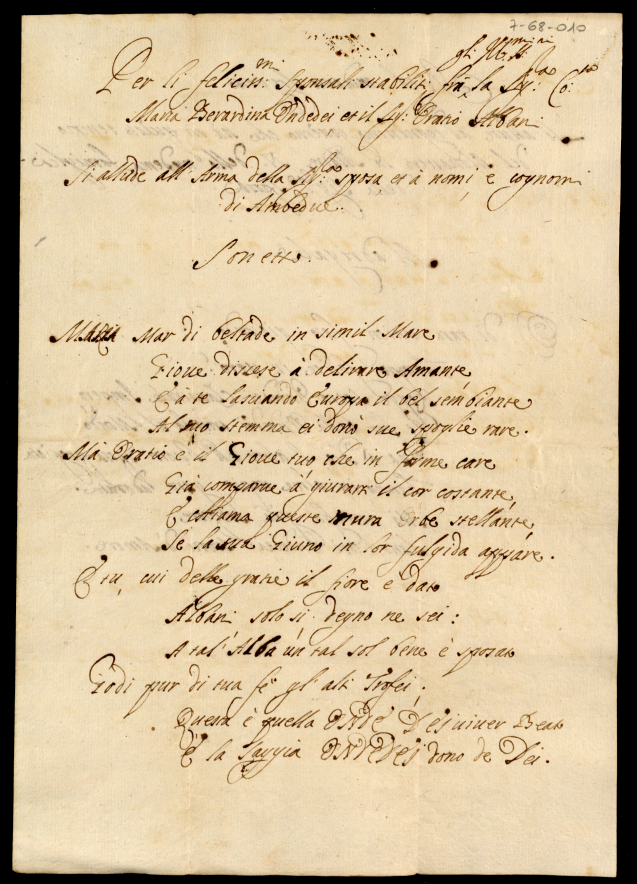 7-68-010
gl' Ill.mi
Per li felicis.mi sponsali stabiliti frà la Sig.ra Co:
Maria Berardina Ondedei et il Sig: Oratio Albani
Si allude all' Arma della Sig.ra sposa et à nomi, e cognomi
di Ambedue.
Sonetto.
MARIA Mar di beltade in simil Mare
Gioue discese à delirare Amante
E à te lasciando Europa il bel sembiante
Al tuo stemma ei donò sue spoglie rare.
Mà Oratio è il Gioue tuo che in forme care
Già comparue à giurarti il cor costante,
E chiama queste mura Orbe stellante
Se la sua Giuno in lor fulgida appare.
E tu, cui delle gratie il fiore è dato
Albani solo sì degno ne sei:
A tal' Alba un tal sol bene è sposato
Godi pur di tua fè gl' alti Trofei,
Questa è quella ONDE DEI viuer Beato
E la saggia ONDEDEI dono de Dei.